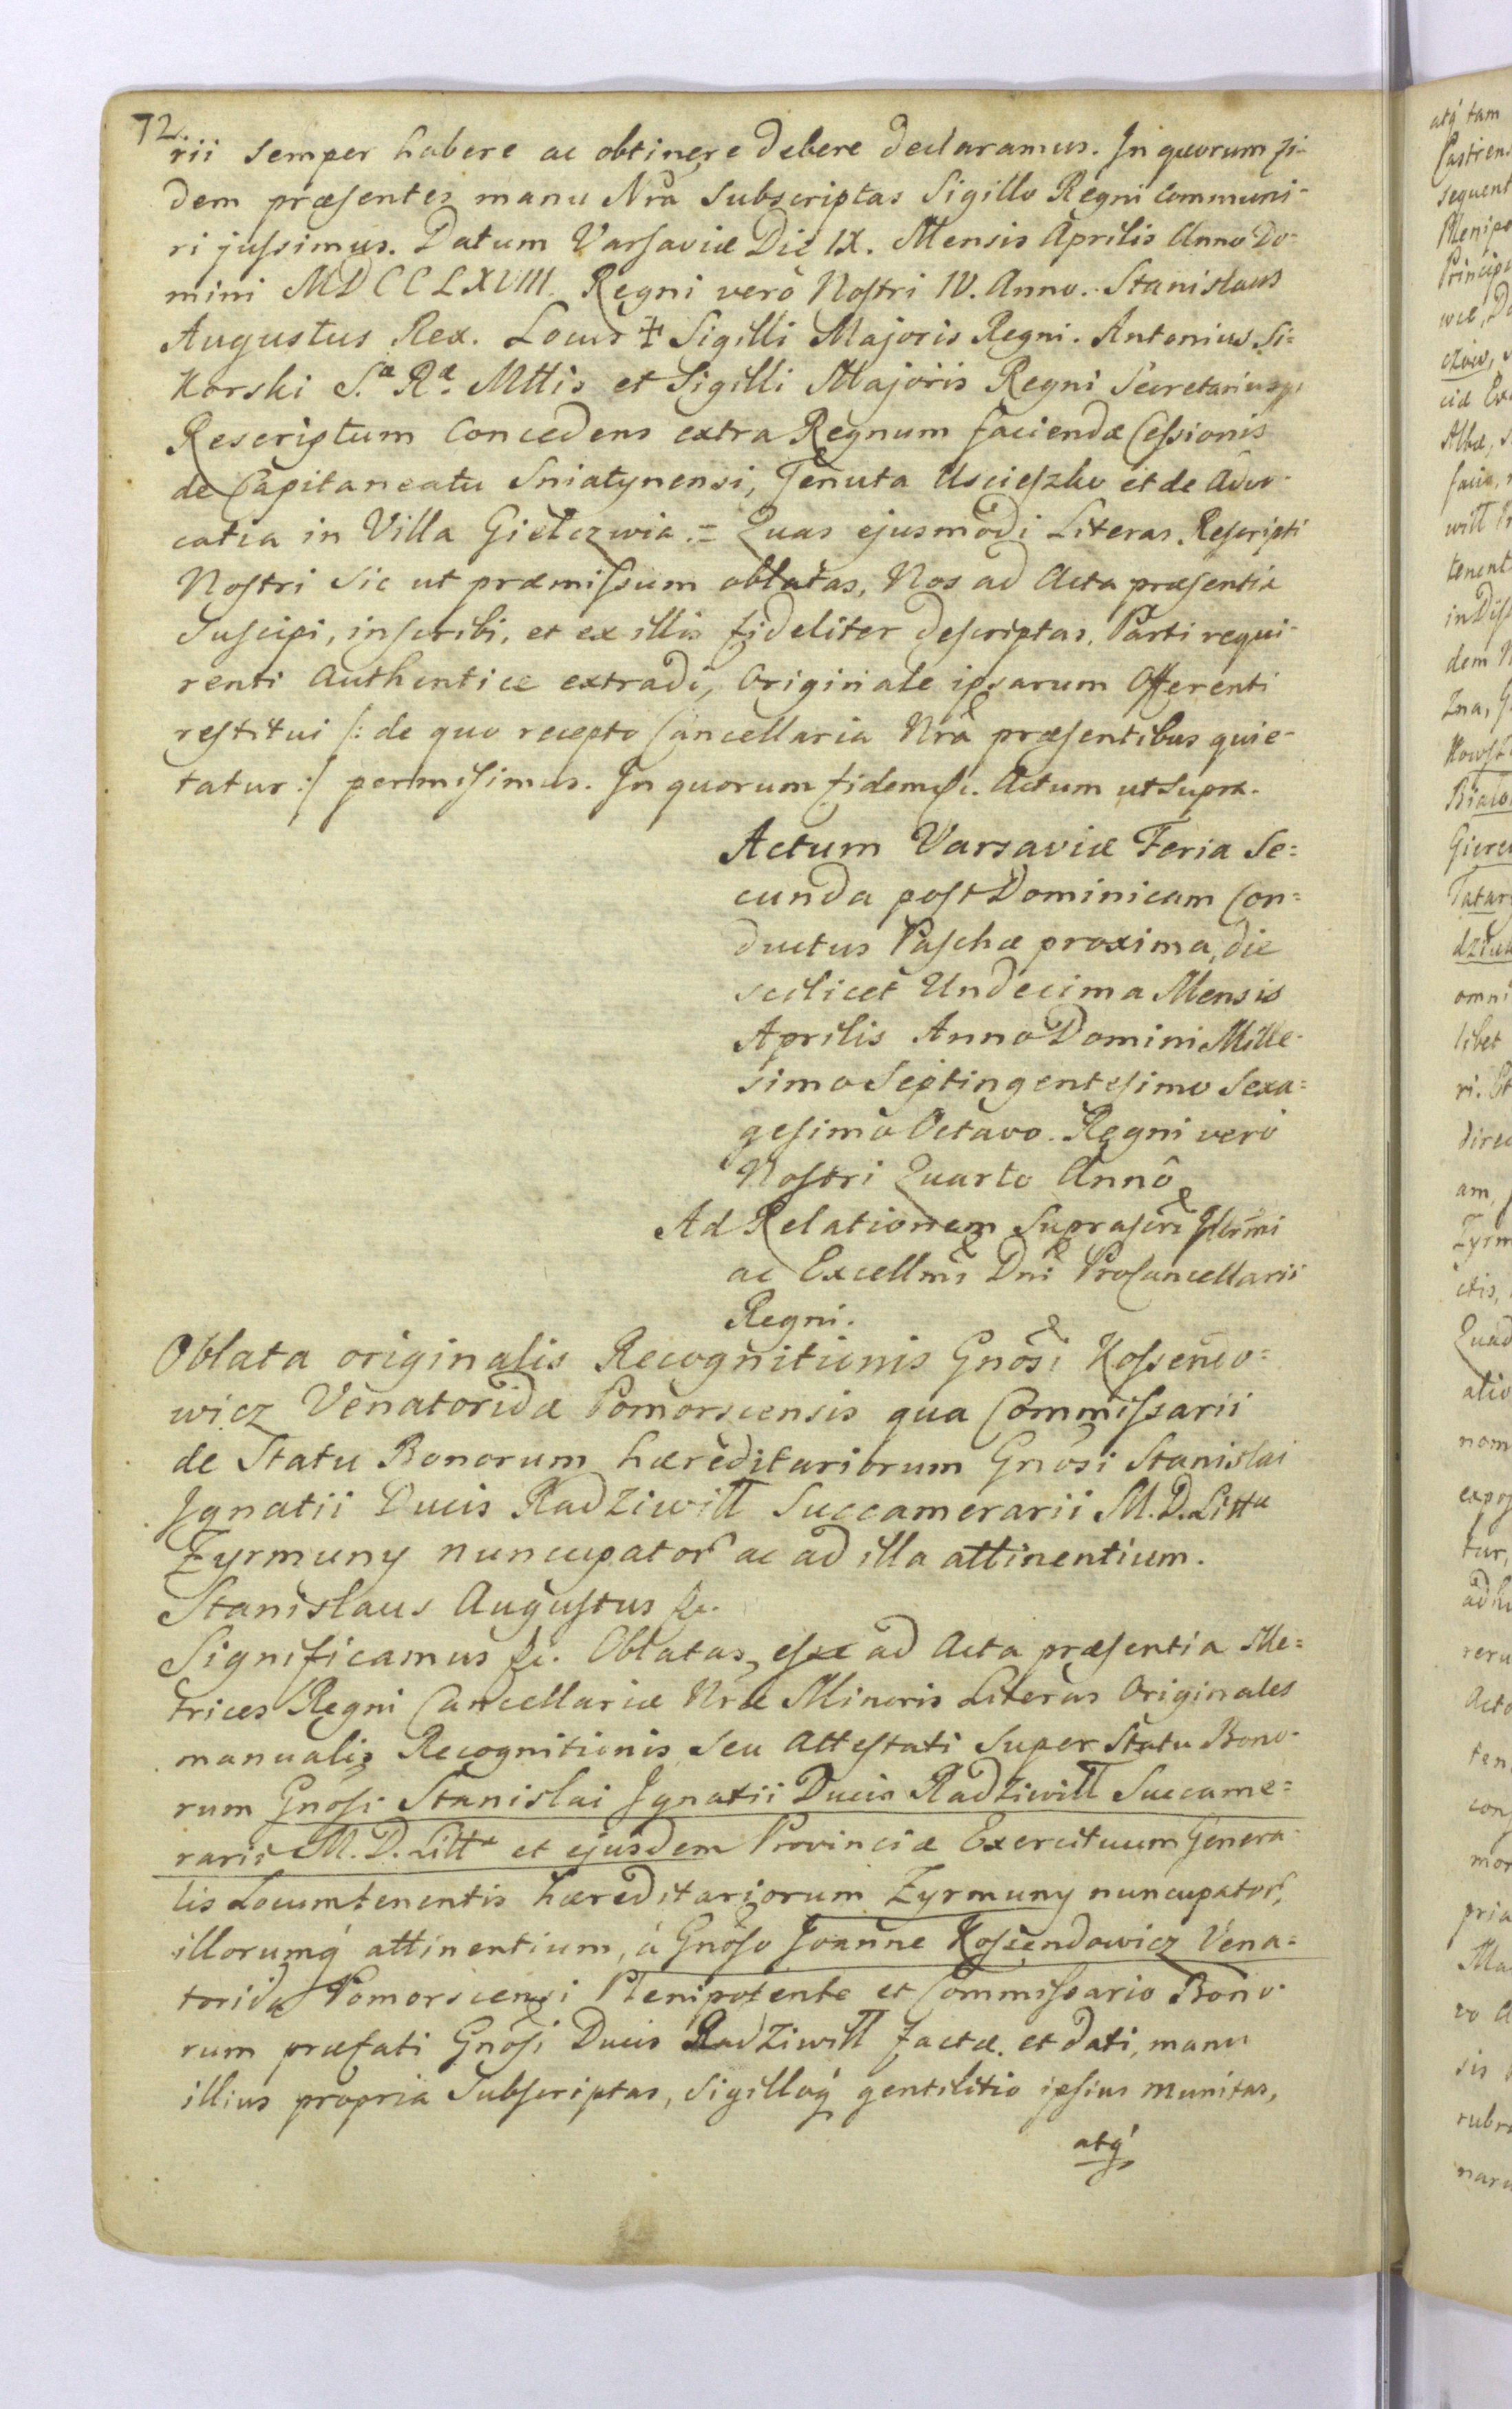 72.
rii semper habere ac obtinere debere declaramus. In quorum fi-
dem præsentes manu Nrã Subscriptas Sigillo Regni communi-
ri jussimus. Datum Varsaviæ Die IX. Mensis Aprilis Anno Do-
mini MDCCLXVIII. Regni verò Nostri IV. Anno. Stanislaus
Augustus Rex. Locus ✝ Sigilli Majoris Regni. Antonius Si=
korski S.æ R.æ Mttis et Sigilli Majoris Regni Secretarius
Rescriptum Concedens extra Regnum faciendæ Cessionis
de Capitaneatu Sniatynensi, Tenuta Uscieszko et de Advo-
catia in Villa Gielczwia. = Quas ejusmodi Literas Rescripti
Nostri Sic ut præmissum oblatas, Nos ad Acta præsentia
Suscipi, inscribi, et ex illis fideliter descriptas, Parti requi-
renti Authentice extradi, Originale ipsarum Offerenti
restitui /: de quo recepto Cancellaria Nrã præsentibus quie-
tatur :/ permisimus. In quorum fidem &c. Actum ut Supra.
Actum Varsaviæ Feria Se=
cunda post Dominicam Con=
ductus Paschæ proxima, die
scilicet Undecima Mensis
Aprilis Anno Domini Mille-
simo Septingentesimo Sexa=
gesimo Octavo. Regni verò
Nostri Quarto Annô
Ad Relationem Suprascri Illrmi
ac Excellmi Dni ProCancellarii
Regni.
Oblata originalis Recognitionis Gnosi Kossendo=
wicz Venatoridæ Pomorscensis qua Commissarii
de Statu Bonorum hæreditariorum Gnosi Stanislai
Ignatii Ducis Radziwiłł Succamerarii M.D.Littæ
Zyrmuny nuncupator ac ad illa attinentium.
Stanislaus Augustus &c.
Significamus &c. Oblatas, esse ad Acta præsentia Me=
trices Regni Cancellariæ Nræ Minoris Literas Originales
manualis Recognitionis Seu Attestati Super Statu Bono-
rum Gnosi Stanislai Ignatii Ducis Radziwiłł Succame=
rarii M.D.Littæ et ejusdem Provinciæ Exercituum Genera-
lis Locumtenentis hæreditariorum Zyrmuny nuncupator,
illorumq́ attinentium, à Gnoso Joanne Kossendowicz Vena=
torida Pomorscensi Plenipotente et Commissario Bono-
rum præfati Gnosi Ducis Radziwiłł factæ et dati, manu
illius propria Subscriptas, Sigilloq́ gentilitio ipsius munitas,
atq́